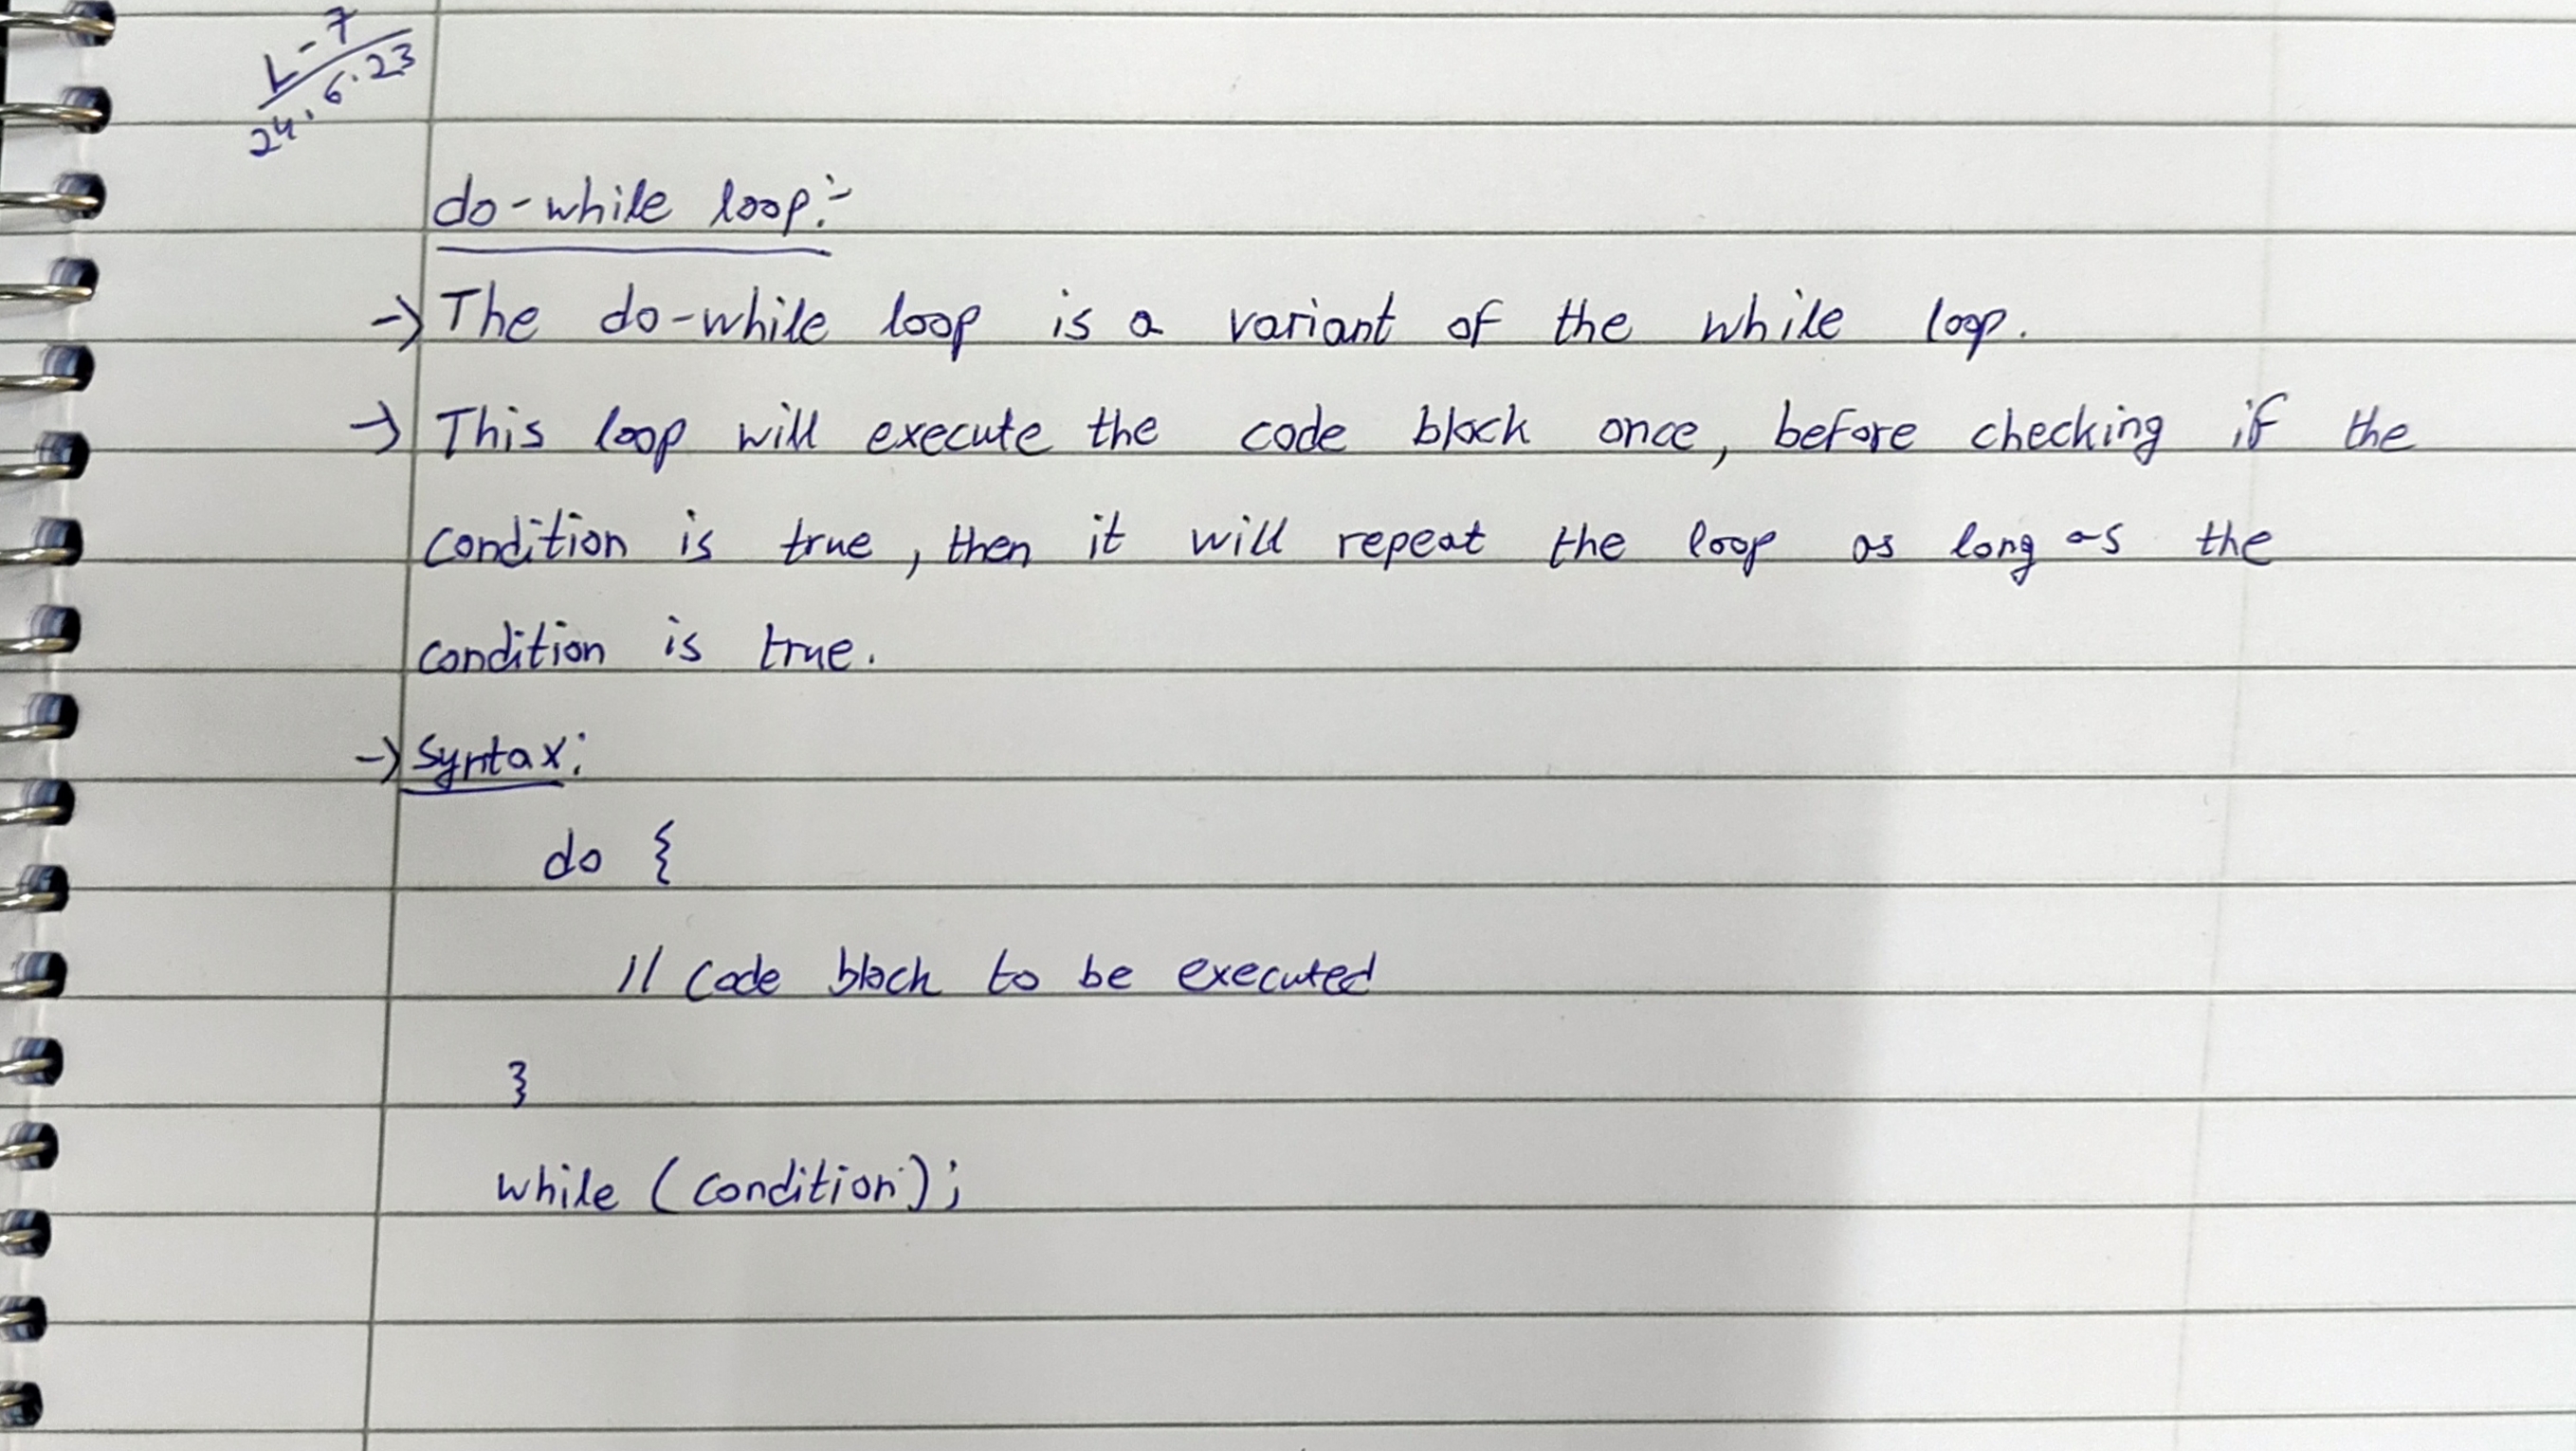 L-7
24.6.23
do-while loop:-
→ The do-while loop is a variant of the while loop.
→ This loop will execute the code block once, before checking if the
condition is true, then it will repeat the loop as long as the
condition is true.
→ Syntax:
do {
// Code block to be executed
}
while (condition);